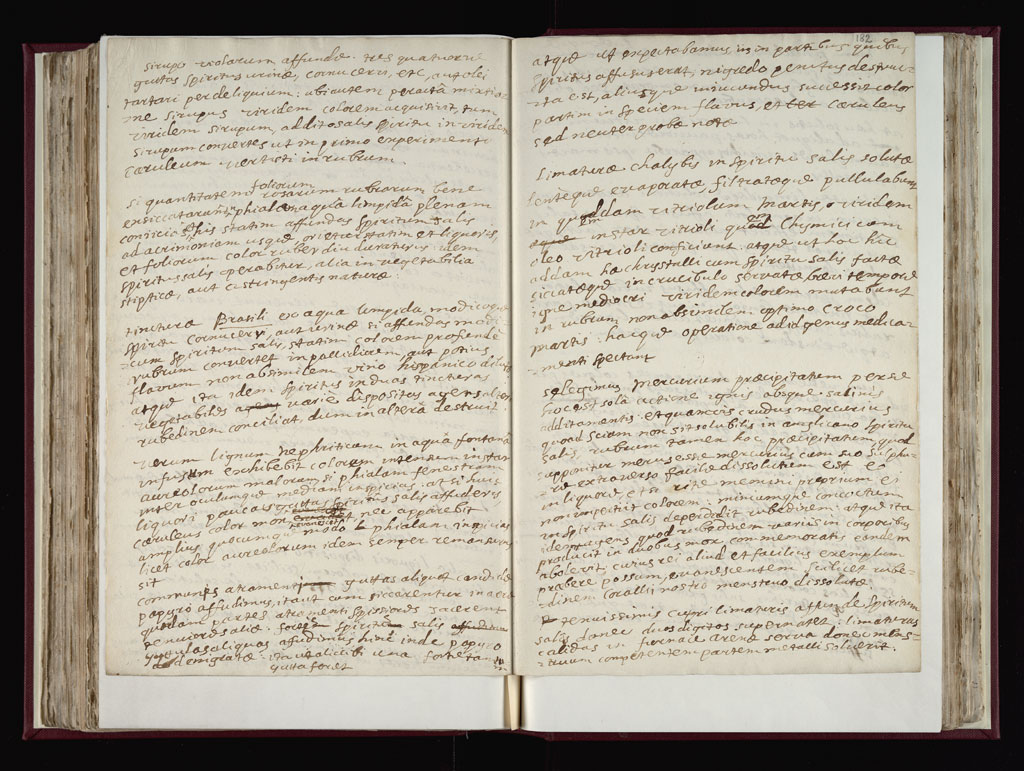 sirupo violarum affunde tres quatuorve
guttas spiritus urinæ, cornucervi, etc, aut olei
tartari per deliquium: ubi autem peracta mixtio-
ne sirupus viridem colorem acquisivit, tum
viridem sirupum, addito salis spiritu in viridem
sirupum convertes ut in primo experimento
cæruleum vertisti in rubrum.
si quantitatem foliorum rosarum rubrarum bene
exsiccatarum in phialam aqua limpida plenam
conjicias his statim affundes spiritum salis
ad acrimoniam usque orietur statim et liquoris,
et foliorum color ruber diu duraturus idem
spiritus salis operabitur, alia in vegetabilia
stiptica, aut astringentis naturæ
tincturæ Brasili ex aqua limpida, modicoque
spiritu cornucervi, aut urinæ si affundas modi-
cum spiritum salis, statim colorem profunde
rubrum convertet in pallidiorem, aut potius
flavum non absimilem vino hispanico diluto
atque ita idem spiritus in duas tincturas
vegetabiles varie dispositas agens alteri
rubedinem conciliat, dum in altera destruit.
verum lignum nephriticum in aqua fontana
infusum exhibebit colorem intensum instar
aureolorum malorum si phialam fenestram
inter oculumque mediam inspicias: at si huic
liquori paucas guttas spiritus salis affuderis
cæruleus color mox evanescet nec apparebit
amplius quocumque modo phialam inspicias
licet color aureolorum idem semper remansurus
sit
communis atramenti guttas aliquot candidæ
papyro affudimus, ita ut cum siccarentur in aere
quædam partes atramenti spissiores jacerent
tenuiores aliæ. spiritus salis
guttulas aliquas affudimus hinc inde papyro
denigratæ ita ut alicubi una forte tantum
gutta foret
182
atque ut expectabamus in iis partibus quibus
spiritus affusus erat, nigredo penitus destruc-
ta est, aliusque injucundus successit color
partim in speciem flavus, et cæruleus
sed neuter probæ notæ
limaturæ chalybis in spiritu salis solutæ
lenteque evaporatæ, filtratæque pullulabunt
in quoddam vitriolum martis, viridem
instar vitrioli quod Chymici cum
oleo vitrioli conficiunt. atque ut hoc hic
addam hæ chrystalli cum spiritu salis factæ
siccatæque in crucibulo servatæ brevi tempore
igne mediocri viridem colorem mutabunt
in rubrum non absimilem optimo croco
martis: hacque operatione ad id genus medica-
menti spectant
selegimus mercurium præcipitatum per se
hoc est sola actione ignis absque salinis
additamentis. et quamvis crudus mercurius
quod sciam non sit solubilis in anglicano spiritu
salis, rubrum tamen hoc præcipitatum, quod
supponitur merus esse mercurius cum suo sulphu-
re extraverso facile dissolutum est eo
liquore, et si rite memini proprium ei
non impertiit colorem: minimumque concoctum
in spiritu salis deperdidit rubedinem. atque ita
idem agens quod rubedinem variis in corporibus
producit in duobus mox commemoratis eandem
abolevit, cujus rei aliud et facilius exemplum
præbere possum, evanescentem scilicet rube-
dinem Corallii nostro menstruo dissolutæ
tenuissimis cupri limaturis affunde spiritum
salis donec duos digitos supernatet: limaturas
calidas in furnace arenæ serva donec mens-
truum competentem partem metalli solverit.